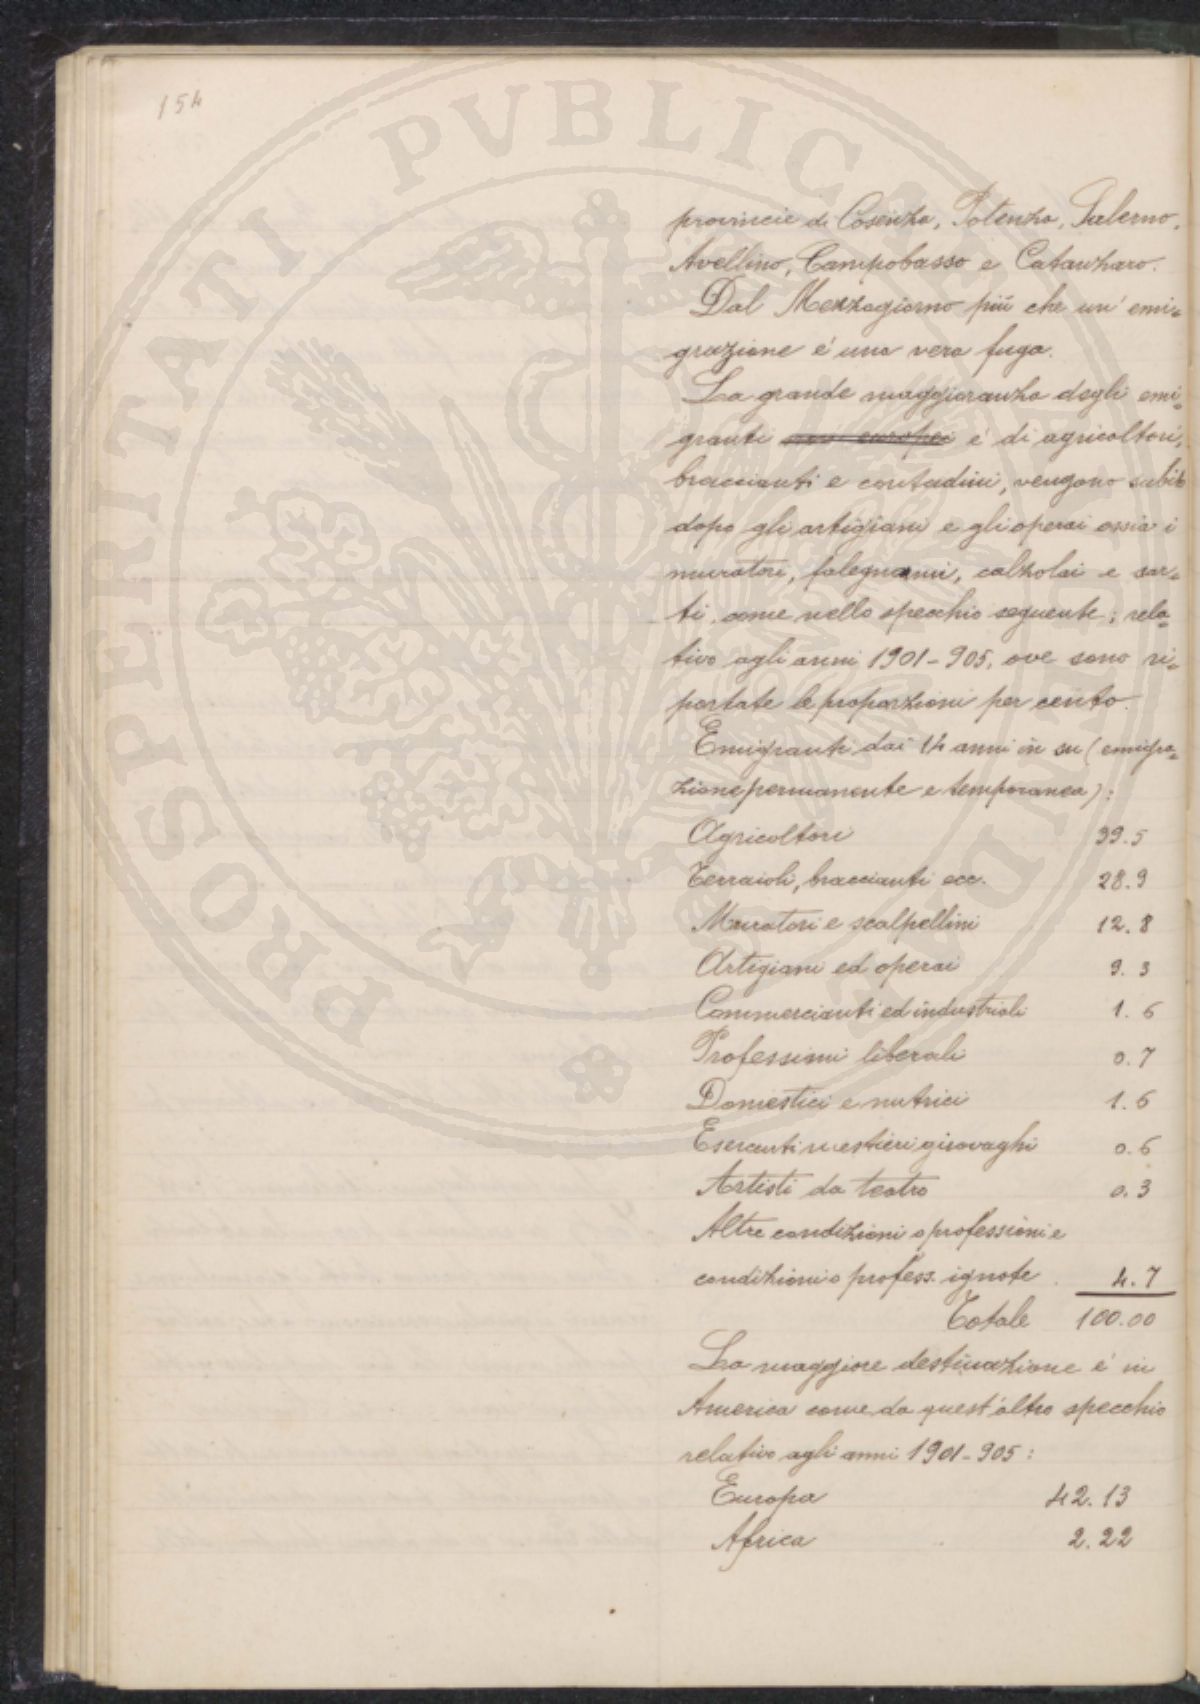 154
PROSPERITATI PVBLICAE
provincie di Cosenza, Potenza, Salerno,
Avellino, Campobasso e Catanzaro.
Dal Mezzogiorno più che un' emi=
grazione é una vera fuga.
La grande maggioranza degli emi=
granti non europei é di agricoltori,
braccianti e contadini, vengono subito
dopo gli artigiani e gli operai ossia i
muratori, falegnami, calzolai e sar=
ti, come nello specchio seguente; rela=
tivo agli anni 1901-905, ove sono ri=
portate le proporzioni per cento.
Emigranti dai 14 anni in su (emigra=
zione permanente e temporanea):
Agricoltori 39.5
Terraioli, braccianti ecc. 28.9
Muratori e scalpellini 12.8
Artigiani ed operai 9.3
Commercianti ed industriali 1.6
Professioni liberali 0.7
Domestici e nutrici 1.6
Esercenti mestieri girovaghi 0.6
Artisti da teatro 0.3
Altre condizioni o professioni e
condizioni o profess. ignote 4.7
Totale 100.00
La maggiore destinazione é in
America come da quest'altro specchio
relativo agli anni 1901-905:
Europa 42.13
Africa 2.22